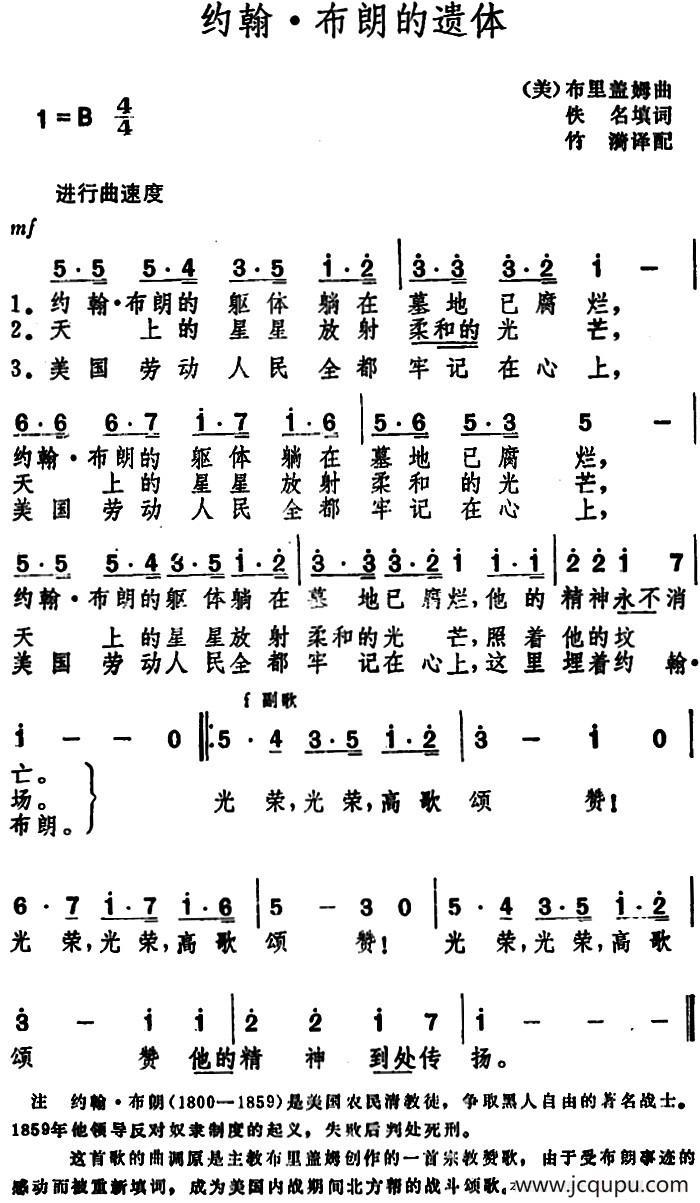 约翰·布朗的遗体
(美)布里盖姆曲
1=B 4/4
佚 名填词
竹 漪译配
进行曲速度
mf
5·5 5·4 3·5 i·2 | 3·3 3·2 i — |
1。约翰·布朗的 躯体 躺在 墓地 已腐 烂，
2。天 上的 星星 放射 柔和的 光 芒，
3。美国 劳动 人民 全都 牢记 在心 上，
6·6 6·7 i·7 i·6 | 5·6 5·3 5 — |
约翰·布朗的 躯体 躺在 墓地 已腐 烂，
天 上的 星星 放射 柔和 的光 芒，
美国 劳动 人民 全都 牢记 在心 上，
5·5 5·4 3·5 i·2 | 3·3 3·2 i i·i | 2 2 i 7 |
约翰·布朗的躯体躺在 墓 地已腐烂，他的 精神永不消
天 上的星星放射 柔和的光 芒，照着 他的坟
美国 劳动人民全都 牢记在心上，这里 埋着约翰·
f 副歌
i — — 0 |: 5·4 3·5 i·2 | 3 — i 0 |
亡。
场。 光荣，光荣，高歌 颂 赞！
布朗。
6·7 i·7 i·6 | 5 — 3 0 | 5·4 3·5 i·2 |
光荣，光荣，高歌 颂 赞！ 光荣，光荣，高歌
3 — i i i | 2 2 i 7 | i — —
颂 赞 他的精 神 到处传 扬。
注 约翰·布朗(1800—1859)是美国农民清教徒，争取黑人自由的著名战士。
1859年他领导反对奴隶制度的起义，失败后判处死刑。
这首歌的曲调原是主教布里盖姆创作的一首宗教赞歌，由于受布朗事迹的
感动而被重新填词，成为美国内战期间北方帮的战斗颂歌。
www.jcqupu.com